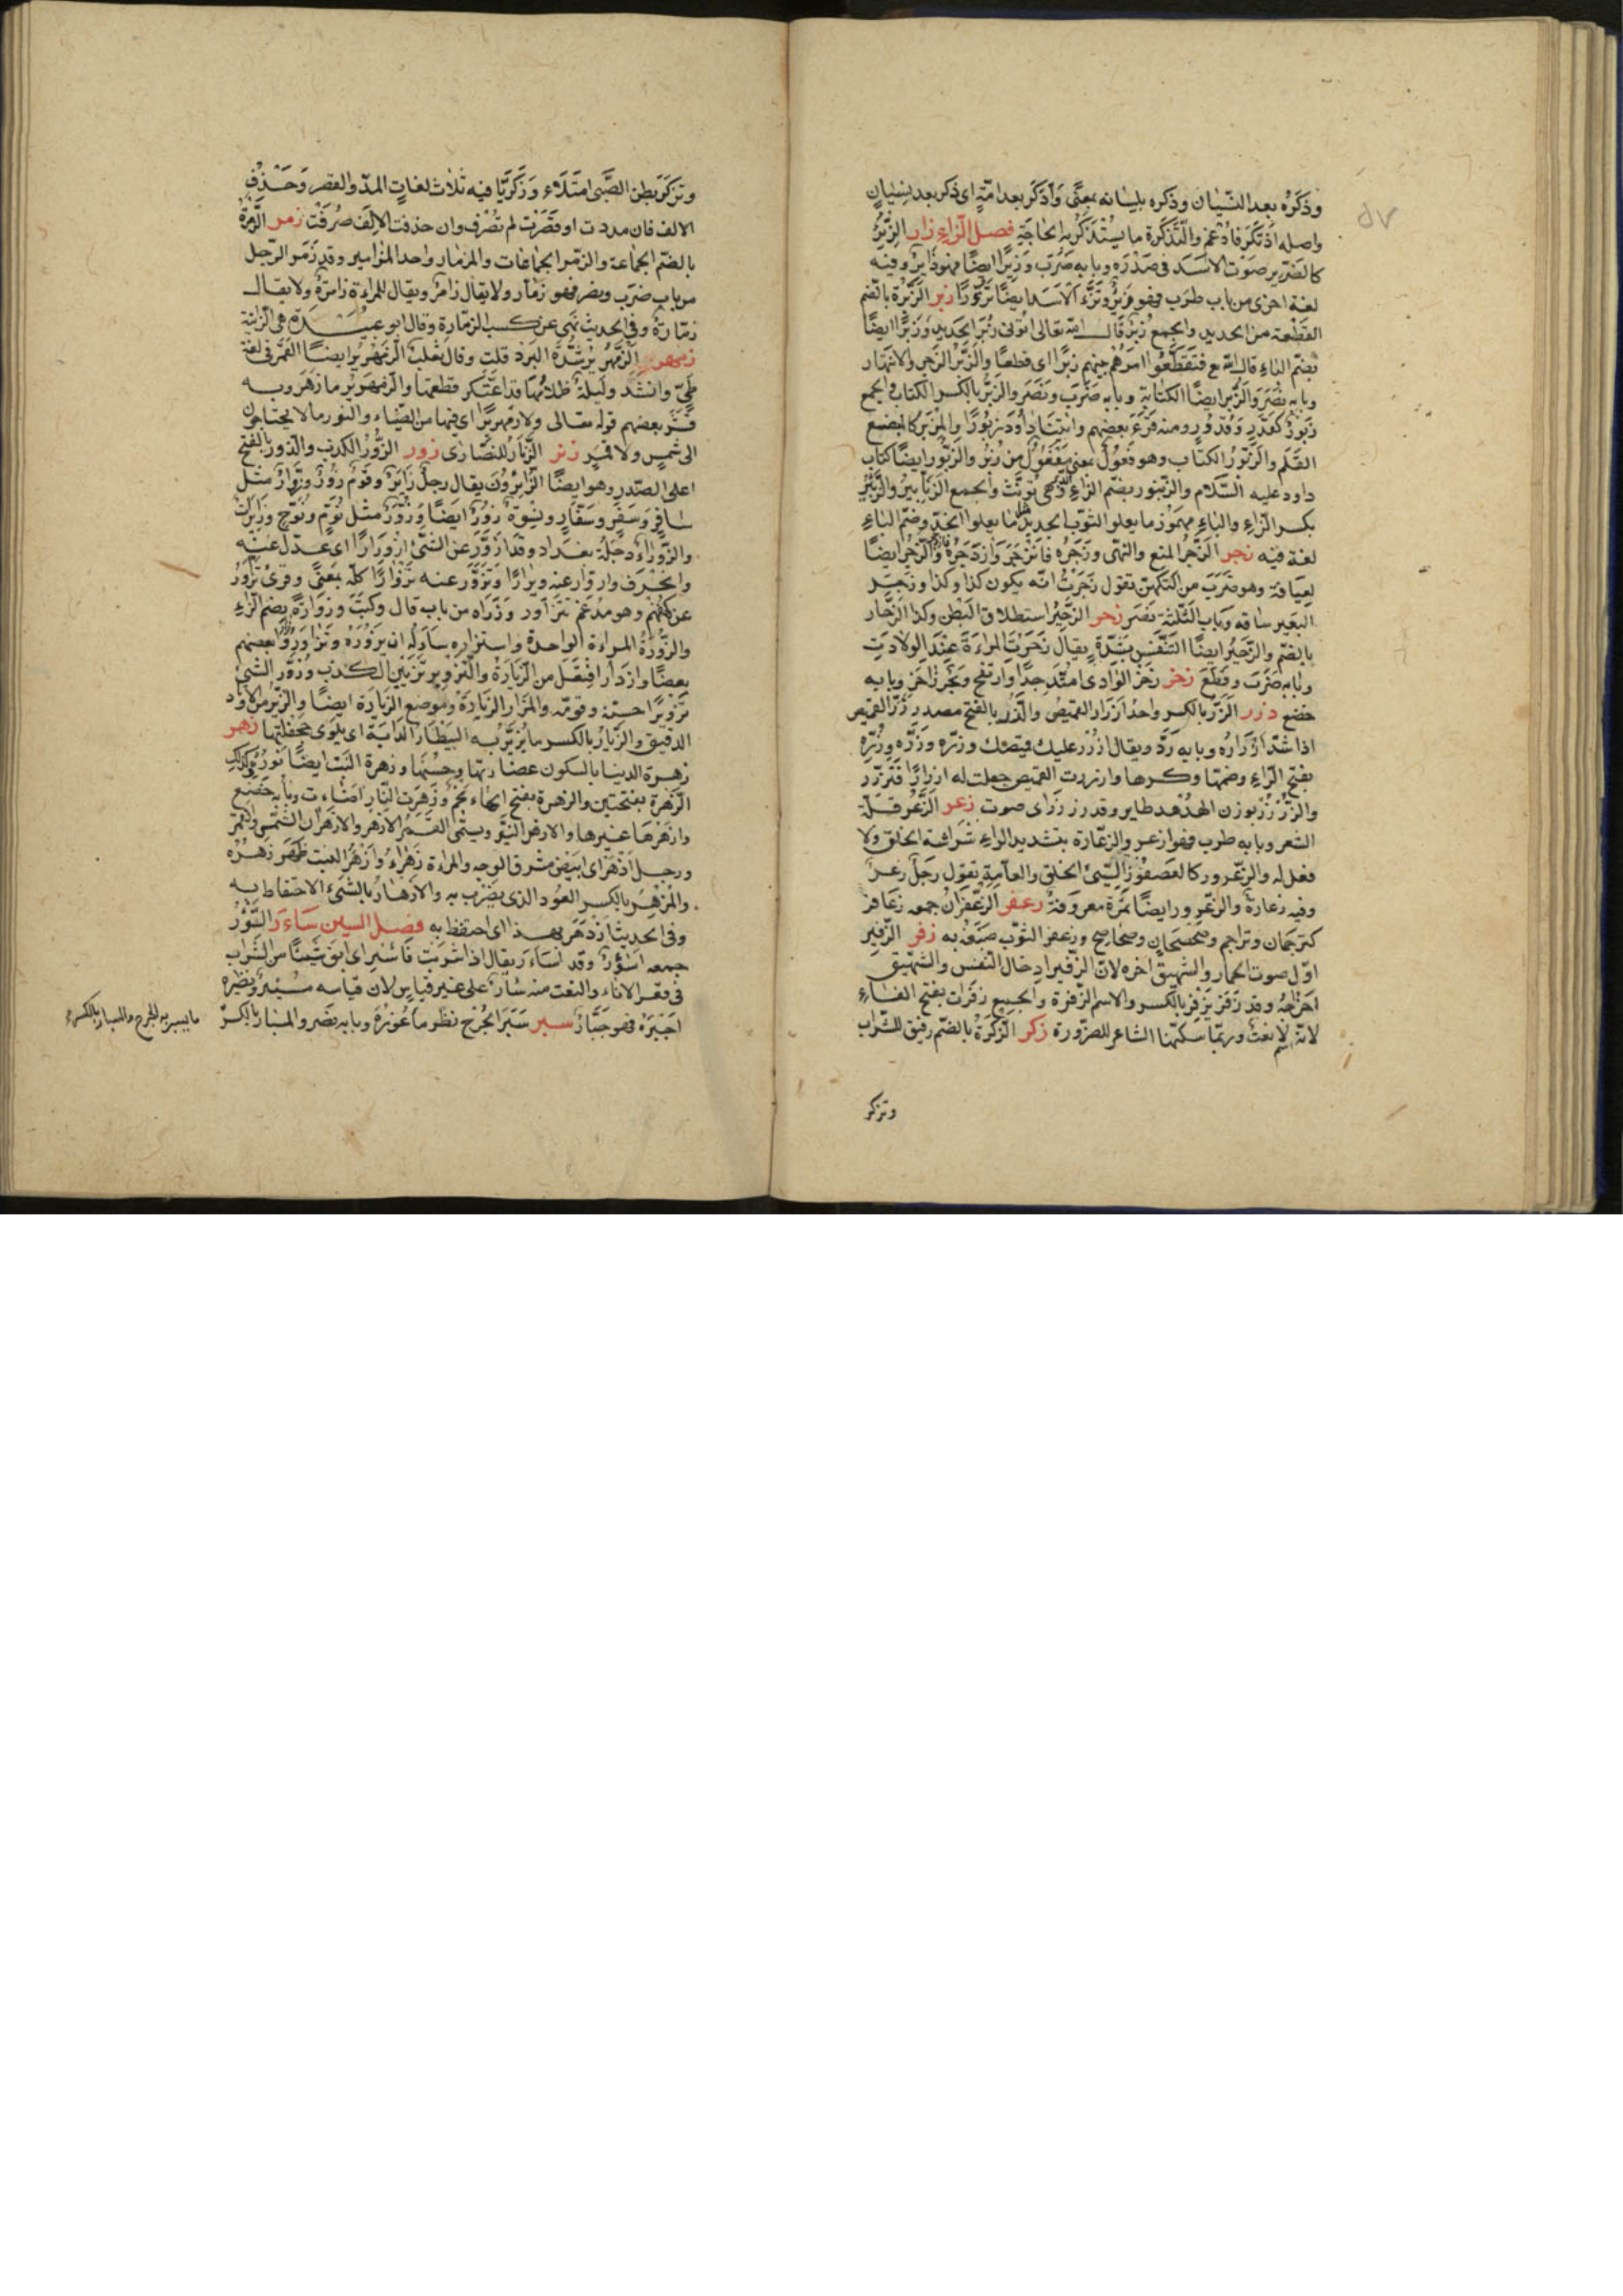 وذكره بعد النسيان وذكره بلسانه بمعنى واذكر بعد امة اى ذكر بعد نسيان
واصله اذتكر فادغم والتذكرة ما يستذكر به الحاجة فصل الزاء زار الزئير
كالضرير صوت الاسد فى صدره وبابه ضرب وزئيرا ايضا فهو زاير وفيه
لغة اخرى من باب طرب فهو زئر وتزأر الاسد ايضا تزؤرا زبر الزبرة بالضم
القطعة من الحديد والجمع زبر قال الله تعالى اتونى زبر الحديد وزبرا ايضا
بضم الباء قال الله تع فتقطعوا امرهم بينهم زبرا اى قطعا والزبر الزجر والانتهار
وبابه نصر والزبر ايضا الكتابة وبابه ضرب ونصر والزبر بالكسر الكتاب والجمع
زبور كقدر وقدور ومنه قرء بعضهم واتينا داود زبورا والمزبر كالمبضع
القلم والزبور الكتاب وهو فعول بمعنى مفعول من زبر والزبور ايضا كتاب
داود عليه السلام والزنبور بضم الزاء وهى تؤنث والجمع الزنابير والزئبر
بكسر الزاء والباء مهموز ما يعلو الثوب الجديد مثل ما يعلوا الخز وضم الباء
لغة فيه زجر الزجر المنع والنهى وزجره فانزجر وازدجره فازدجر والزجر ايضا
لعيافة وهو ضرب من التكهن تقول زجرت انه يكون كذا وكذا وزجر
البعير ساقه وباب الثلثة نصر زحر الزحير استطلاق البطن وكذا الزحار
بالضم والزحير ايضا التنفس بشدة يقال زحرت المراءة عند الولادت
وبابه ضرب وقطع زخر زخر الوادى امتد جدا وارتفع وبحر زاخر وبابه
خضع زرر الزر بالكسر واحد ازرار القميص والزر بالفتح مصدر زر القميص
اذا شد ازراره وبابه رد ويقال ازرر عليك قميصك وزره وزره وزره
بفتح الزاء وضمها وكسرها وازررت القميص جعلت له ازرارا فتزرر
والزرزر بوزن الهدهد طاير وقد زرزر اى صوت زعر الزعر قلة
الشعر وبابه طرب فهو ازعر والزعارة بتشديد الراء شراسة الخلق ولا
فعل له والزعرور كالعصفور السيئ الخلق والعامة تقول رجل زعر
وفيه زعارة والزعرور ايضا ثمرة معروفة زعفر الزعفران جمعه زعافر
كترجمان وتراجم وصحصحان وصحاصح وزعفر الثوب صبغه به زفر الزفير
اول صوت الحمار والشهيق اخره لان الزفير ادخال النفس والشهيق
اخراجه وقد زفر يزفر بالكسر والاسم الزفرة والجميع زفرات بفتح الفاء
لانه اسم لا نعت وربما سكنها الشاعر للضرورة زكر الزكرة بالضم زقيق للشراب
وتزكر
وتزكر بطن الصبى امتلاء وزكريا فيه ثلاث لغات المد والقصر وحذف
الالف فان مددت او قصرت لم تصرف وان حذفت الالف صرفت زمر الزمرة
بالضم الجماعة والزمر الجماعات والمزمار واحد المزامير وقد زمر الرجل
من باب ضرب ونصر فهو زمار ولا يقال زامر ويقال للمراءة زامرة ولا يقال
زمارة وفى الحديث نهى عن كسب الزمارة وقال ابو عبيدة هى الزانية
زمهر الزمهرير شدة البرد قلت وقال ثعلب الزمهرير ايضا القمر فى لغة
طى وانشد وليلة ظلامها قد اعتكر قطعتها والزمهرير ما زهر وبه
فسر بعضهم قوله تعالى ولا زمهريرا اى فيها من الضياء والنور ما لا يحتاجون
الى شمس ولا قمر زنر الزنار للنصارى زور الزور الكذب والزور بالفتح
اعلى الصدر وهو ايضا الزايرون يقال رجل زاير وقوم زور وزوار مثل
سافر وسفر وسفار ونسوة زور ايضا وزور مثل نوم ونوح وزايرات
والزوراء دجلة بغداد وقد ازور عن الشئ ازورارا اى عدل عنه
وانحرف وازوار عنه ويرارا وتزور عنه تزوارا كله بمعنى وقرئ تزور
عن كهفهم وهو مدغم تتزاور وزراه من باب قال وكتب وزوارة بضم الزاء
والزورة المراءة الواحدة واستزاره ساءله ان يزوره وتزاوروا زار بعضهم
بعضا وازدار افتعل من الزيارة والتزوير تزيين الكذب وزور الشئ
تزويرا حسنه وقومه والمزار الزيارة وموضع الزيارة ايضا والزير من الاوتاد
الدقيق والزيار بالكسر ما يزير به البيطار الدابة اى يلوى جحفلتها زهر
زهرة الدنيا بالسكون عضارتها وحسنها وزهرة النبت ايضا نوره وكذلك
الزهرة بفتحتين والزهرة بفتح الهاء نجم وزهرت النار اضاءت وبابه خضع
وازهرها غيرها والازهر النير ويسمى القمر الازهر والازهران الشمس والقمر
ورجل ازهر اى ابيض مشرق الوجه والمراءة زهراء وازهر النبت ظهر زهره
والمزهر بالكسر العود الذى يضرب به والازهار بالشئ الاحتفاظ به
وفى الحديث ازدهر بهذا اى احتفظ به فصل السين ساءر السؤر
جمعه اسؤر وقد اساءر يقال اذا شربت فاسئر اى ابق شيئا من الشراب
فى قعر الاناء والنعت منه سأر على غير قياس لان قياسه مسئر ونظيره
اجبره فهو جبار سبر سبر الجرح نظر ما غوره وبابه نصر والمسبار بالكسر
ما يسبر به الجرح والسبار بالكسر